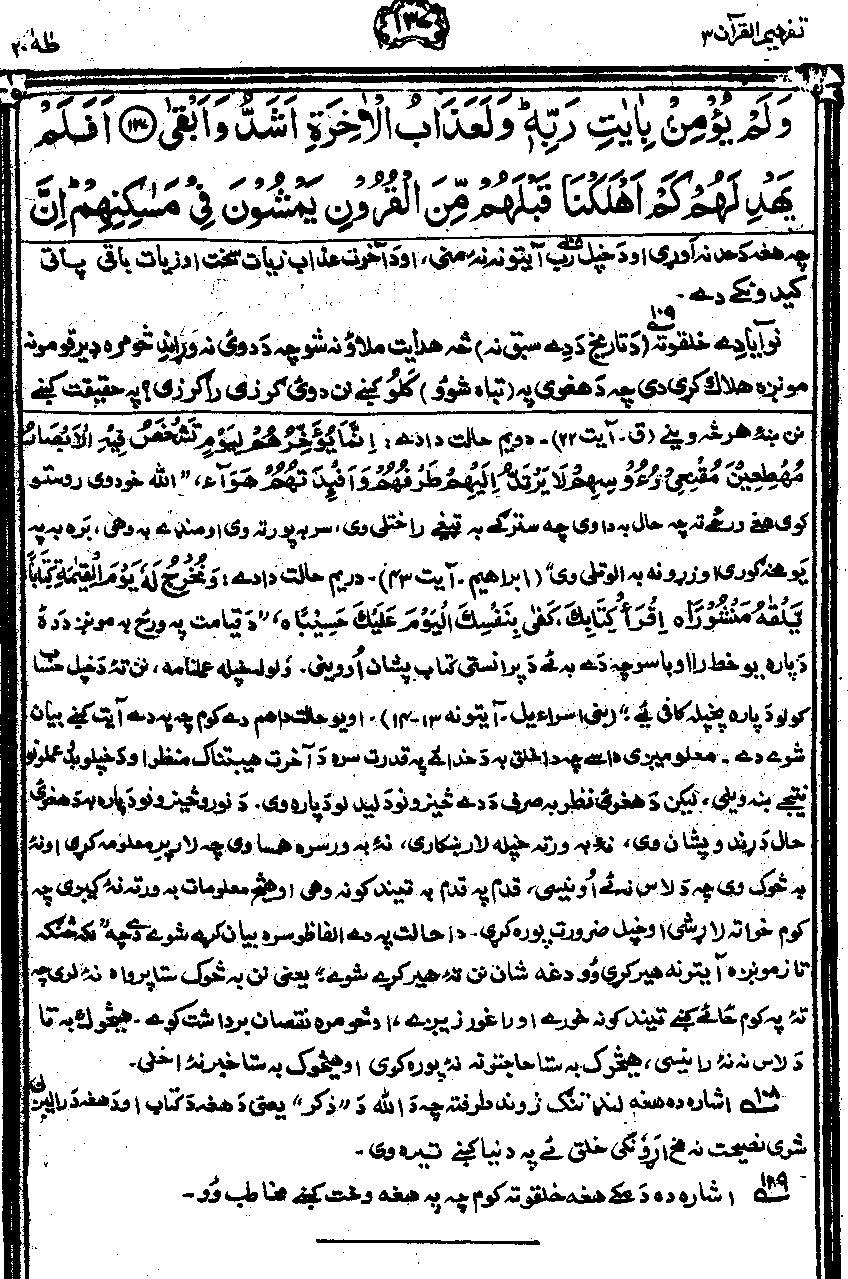 تفهیم القرآن ۳
۱۳۷
طٰهٰ ۲۰
وَلَمْ يُؤْمِنْ بِاٰيٰتِ رَبِّهٖ ؕ وَلَعَذَابُ الْاٰخِرَةِ اَشَدُّ وَاَبْقٰى ﴿۱۲۷﴾ اَفَلَمْ
يَهْدِ لَهُمْ كَمْ اَهْلَكْنَا قَبْلَهُمْ مِّنَ الْقُرُوْنِ يَمْشُوْنَ فِيْ مَسٰكِنِهِمْ ؕ اِنَّ
چه هغه د حد نه آوړی او د خپل رب آیتونه نۀ منی، او د آخرت عذاب زیات سخت او زیات باقی پاتې
کیدونکے دے۔
نو آیا دے خلقو ته ۱۰۹ (د تاریخ د دے سبق نه) څه هدایت ملاؤ نه شو چه د دوئ نه وړاندِ څومره ډیر قومونه
مونږه هلاک کړی دی چه د هغوی په (تباه شوؤ) کلو کښے نن دوئ گرزی راگرزی؟ په حقیقت کښے
نن ښۀ هر څه وینے (ق۔ آیت ۲۲)۔ دویم حالت دا دے: اِنَّمَا يُؤَخِّرُهُمْ لِيَوْمٍ تَشْخَصُ فِيْهِ الْاَبْصَارُ
مُهْطِعِيْنَ مُقْنِعِيْ رُءُوْسِهِمْ لَا يَرْتَدُّ اِلَيْهِمْ طَرْفُهُمْ وَاَفْـِٕدَتُهُمْ هَوَآء، "الله خو دوی روستو
کوی هغے ورځے ته چه حال به دا وی چه سترګے به تیغے راختلی وی، سر به پورته وی او منډے به وهی، بره به په
یو هغه کوری او زړونه به الوتلی وی" (ابراهیم۔ آیت ۴۳)۔ دریم حالت دا دے: وَنُخْرِجُ لَهٗ يَوْمَ الْقِيٰمَةِ كِتَابًا
يَّلْقٰهُ مَنْشُوْرًا ہ اِقْرَأْ كِتَابَكَ، كَفٰى بِنَفْسِكَ الْيَوْمَ عَلَيْكَ حَسِيْبًا ہ، "د قیامت په ورځ به مونږ د دۀ
دپاره یو خط را اوباسو چه دے به ئے د پرانستی کتاب پشان اُووینی۔ ولوله خپله عملنامه، نن تۀ د خپل حساب
کولو دپاره پخپله کافی ئے" (بنی اسراءیل۔ آیتونه ۱۳-۱۴)۔ او یو حالت دا هم دے کوم چه په دے آیت کښے بیان
شوے دے۔ معلومیږی داسے چه دا خلق به د خدائے په قدرت سره د آخرت هیبتناک منظر او د خپلو بدُ عملونو
نتیجے ښه وینی، لیکن د هغوی نظر به صرف د دے څیزونو د لیدلو دپاره وی۔ د نورو څیزونو دپاره به د هغوی
حال د ړندو پشان وی، نۀ به ورته خپله لار ښکاری، نۀ به ورسره همسا وی چه لار پرِ معلومه کړی او نۀ
به څوک وی چه د لاس نه ئے اُونیسی، قدم په قدم به تیندکونه وهی او هیڅ معلومات به ورته نۀ کیږی چه
کوم خوا ته لاړ شی او خپل ضرورت پوره کړی۔ دا حالت په دے الفاظو سره بیان کړے شوے دے چه "لکه څنګه
تا زمونږه آیتونه هیر کړی وُو دغه شان نن تۀ هیر کړے شوے" یعنی نن به څوک ستا پرواه نۀ لری چه
تۀ په کوم ځائے کښے تیندکونه خورے او راغورزیږے، او څومره نقصان برداشت کوے۔ هیڅوک به تا
د لاس نه نۀ رانیسی، هیڅوک به ستا حاجتونه نۀ پوره کوی او هیڅوک به ستا خبر نۀ اخلی۔
۱۰۸ اشاره ده هغه لنډ تنګ ژوند طرفته چه د الله د "ذکر" یعنی د هغه د کتاب او د هغه د رالیږلے
شوی نصیحت نه مخ اړَوُنکی خلق ئے په دنیا کښے تیره وی۔
۱۰۹ اشاره ده د مکے هغه خلقو ته کوم چه په هغه وخت کښے مخاطب وُو۔